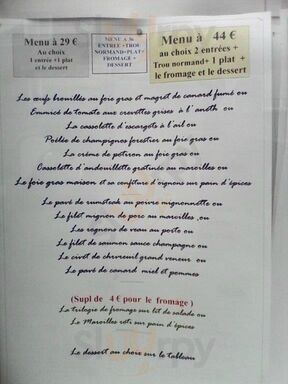 Menu à 29 €
Au choix
1 entrée +1 plat
et le dessert
MENU A 36
ENTREE +TROU
NORMAND+PLAT+
FROMAGE +
DESSERT
Menu à 44 €
au choix 2 entrées +
Trou normand+ 1 plat +
le fromage et le dessert
Les œufs brouillés au foie gras et magret de canard fumé ou
Emincé de tomate aux crevettes grises à l' aneth ou
La cassolette d'escargots à l'ail ou
Poêlée de champignons forestiers au foie gras ou
La crème de potiron au foie gras ou
Cassolette d'andouillette gratinée au maroilles ou
Le foie gras maison et sa confiture d'oignons sur pain d'épices
Le pavé de rumsteak au poivre mignonnette ou
Le filet mignon de porc au maroilles ,ou
Les rognons de veau au porto ou
Le filet de saumon sauce champagne ou
Le civet de chevreuil grand veneur ou
Le pavé de canard miel et pommes
(Supl de 4 € pour le fromage )
La trilogie de fromage sur lit de salade ou
Le Maroilles roti sur pain d'épices
Le dessert au choix sur le tableau